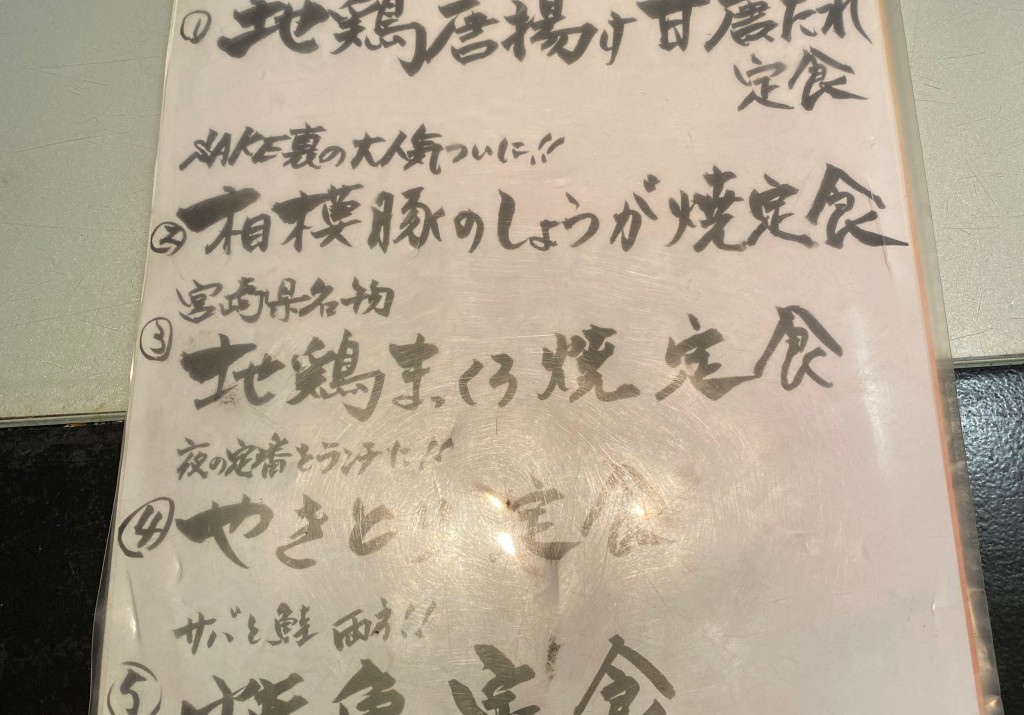 ① 地鶏唐揚げ甘唐だれ
定食
SAKE裏の大人気ついに!!
② 相模豚のしょうが焼定食
宮崎県名物
③ 地鶏まっくろ焼定食
夜の定番をランチに!!
④ やきとり定食
サバと鮭両方!!
⑤ 焼魚定食